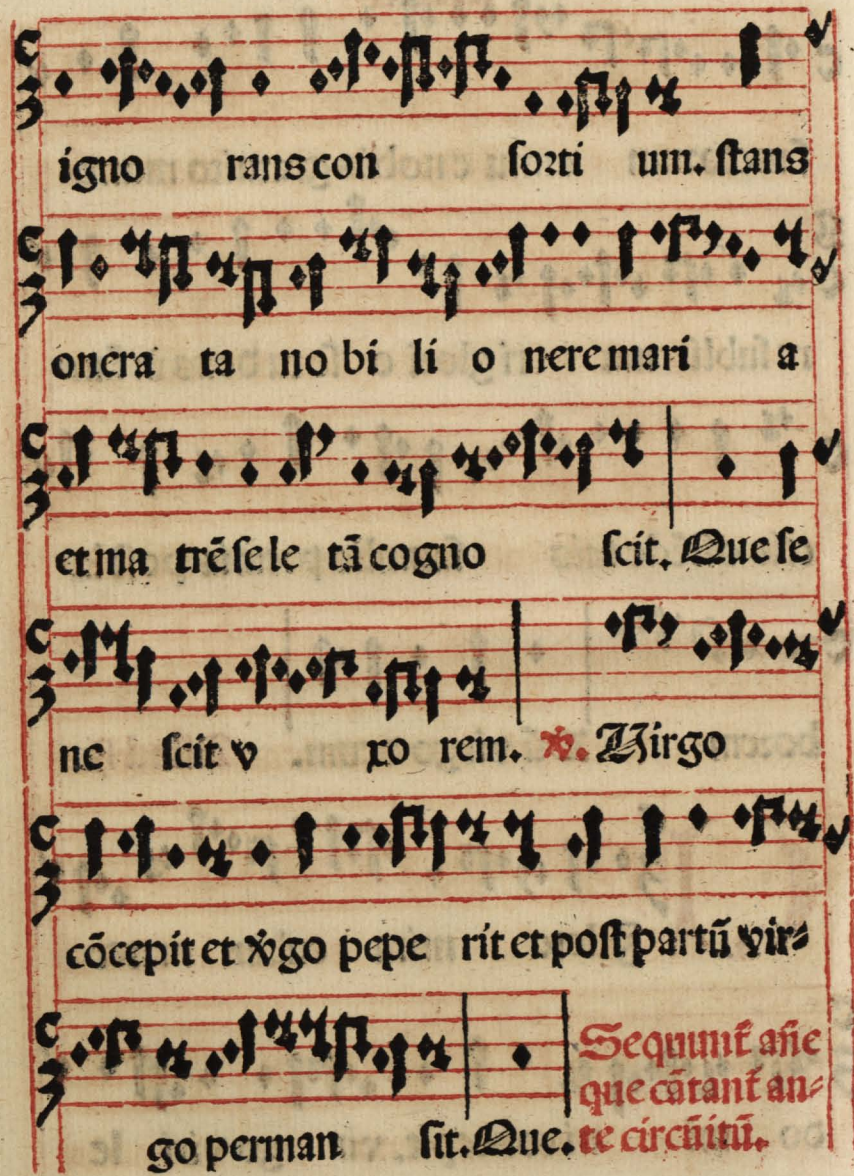 igno rans con sorti um. stans
onera ta no bi li o nere mari a
et ma trē se le tā cogno scit. Que se
ne scit v xo rem. ℣. Uirgo
cōcepit et v̄go pepe rit et post partū vir⸗
go perman sit. Que.
Sequunt̄ añe
que cātant̄ an⸗
te circūitū.